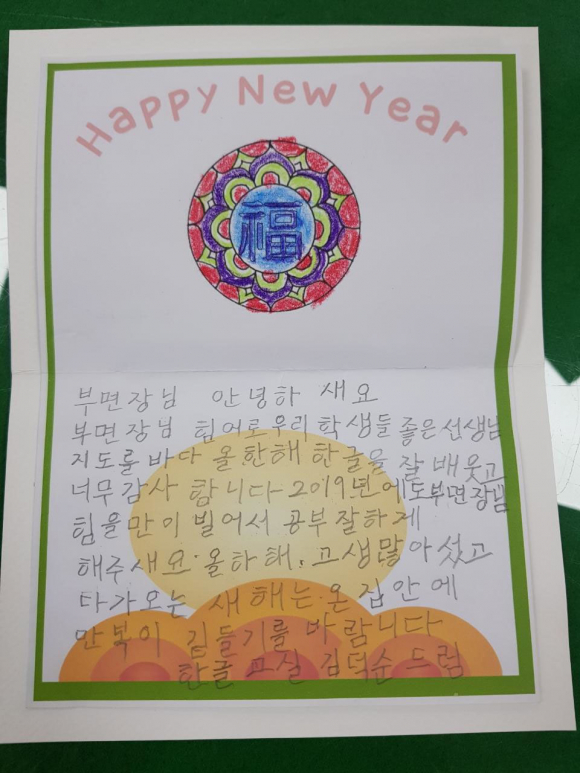 Happy New Year
福
부면장님 안녕하 새요
부면장님 힘어로 우리 학생들 좋은 선생님
지도를 바다 올 한해 한글을 잘 배웃고
너무 감사 합니다 2019년에도 부면장님
힘을 만이 빌어서 공부 잘하게
해주새요. 올하해, 고생많아섰고
타가오는 새해는 온 집안에
만복이 깁들기를 바랍니다
한글 교실 김덕순 드림